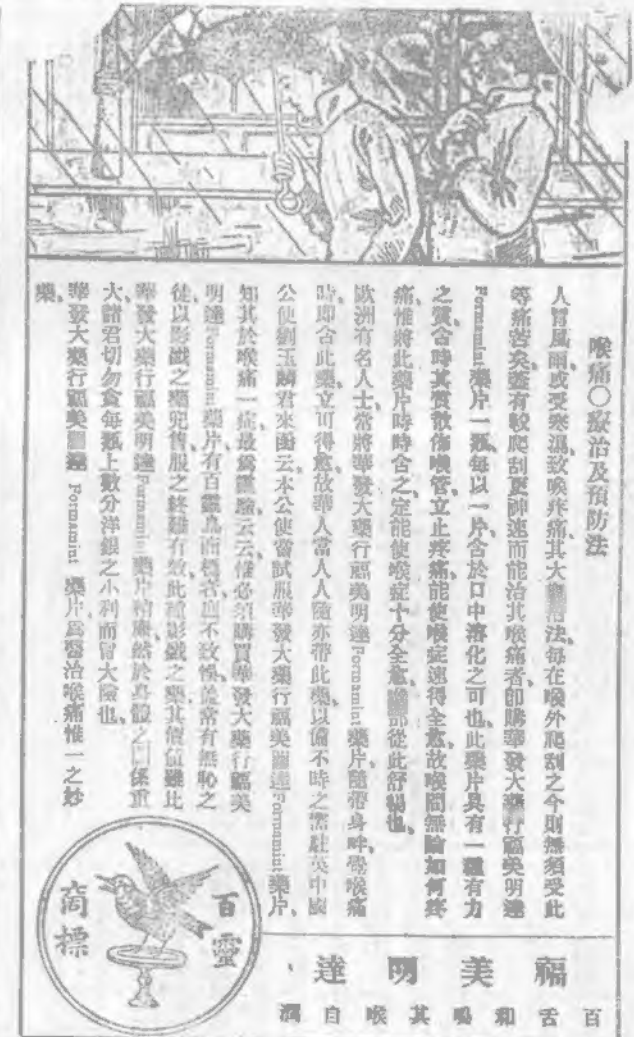 喉痛○療治及預防法
人冒風雨或受寒濕致喉疼痛其大治法每在喉外爬刮之今則無須受此
等痛苦矣蓋有較爬刮更神速而能治其喉痛者即購華發大藥行福美明達
Formamint 藥片一瓶每以一片含於口中溶化之可也此藥片具有一種有力
之質含時其質散佈喉管立止疼痛能使喉症速得全愈故喉間無論如何疼
痛惟將此藥片時時含之定能使喉症十分全愈喉部從此舒暢也
歐洲有名人士常將華發大藥行福美明達 Formamint 藥片隨帶身畔覺喉痛
時即含此藥立可得愈故華人當人人隨亦帶此藥以備不時之需駐英中國
公使劉玉麟君來函云本公使嘗試服華發大藥行福美明達 Formamint 藥片
知其於喉痛一症最為靈驗云云惟必須購買華發大藥行福美
明達 Formamint 藥片有百靈鳥商標者庶不致悞蓋常有無恥之
徒以影戤之藥兜售服之終難有效此種影戤之藥其價值雖比
華發大藥行福美明達 Formamint 藥片稍廉然於身體之關係重
大諸君切勿貪每瓶上數分洋銀之小利而冒大險也
華發大藥行福美明達 Formamint 藥片為醫治喉痛惟一之妙
藥
百靈
商標
福美明達
百舌和鳴其喉自潤